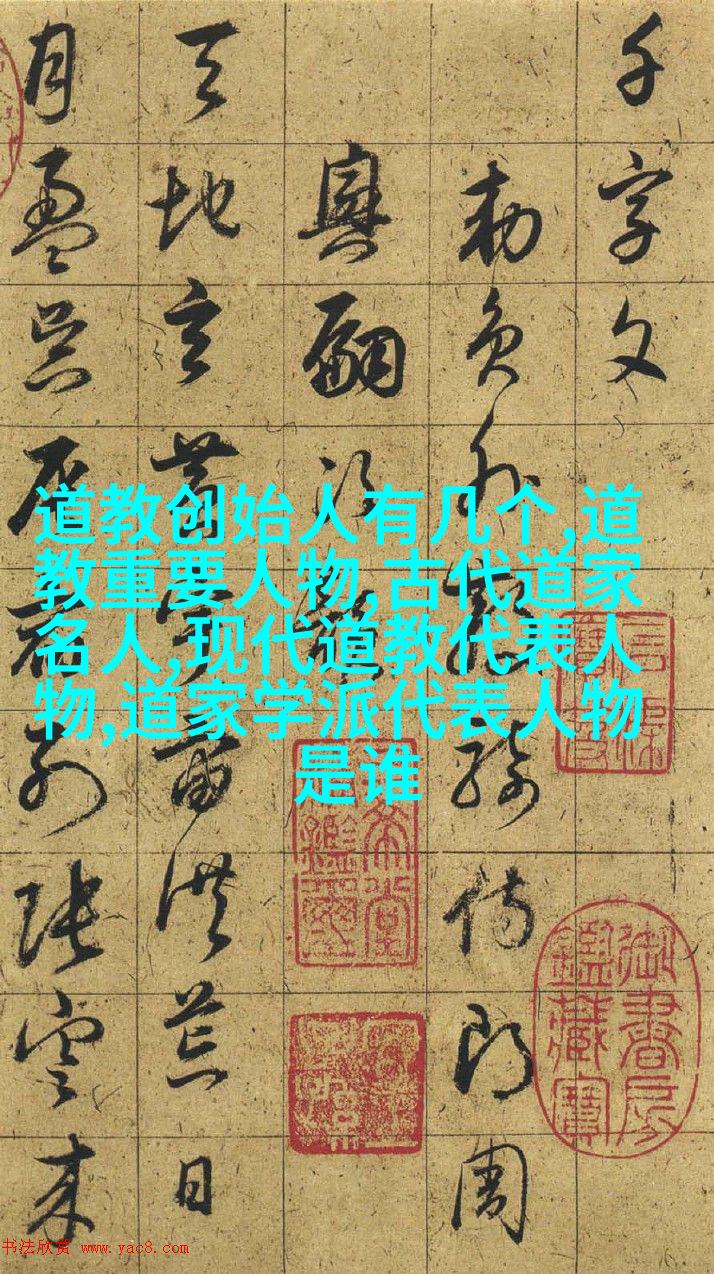 千字文
勅員外散騎侍郎周
興嗣次韻
天地玄黃宇宙洪荒日
月盈昃辰宿列張雲來
道教创始人有几个,道
教重要人物,古代道家
名人,现代道教代表人
物,道家学派代表人物
是谁
御書房
鑑藏寶
书法欣赏 www.yac8.com